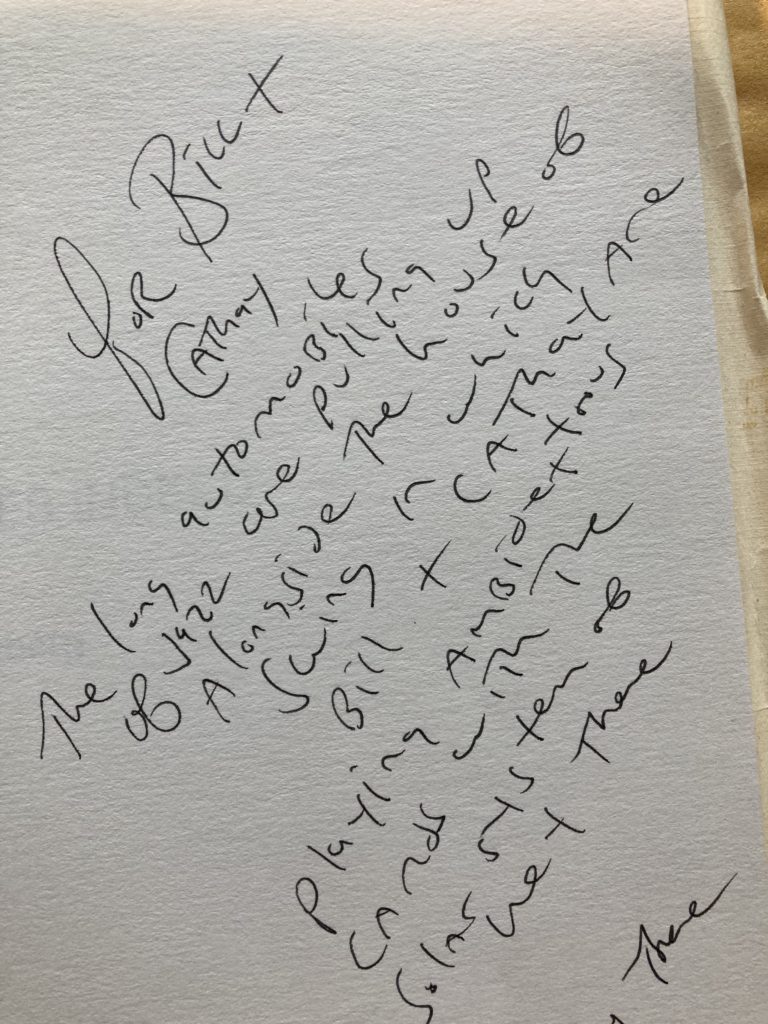 for Bill X
CAThay
The long automobiles
of Jazz are pulling up
Alongside the house of
Swing in which
Bill X CAThay Are
Playing AMBIDextrous
CArds with The
Solar system of
Hey There
There